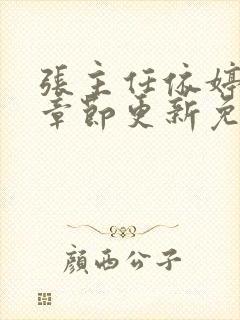 張主任依婷
章節更新免
顏西公子